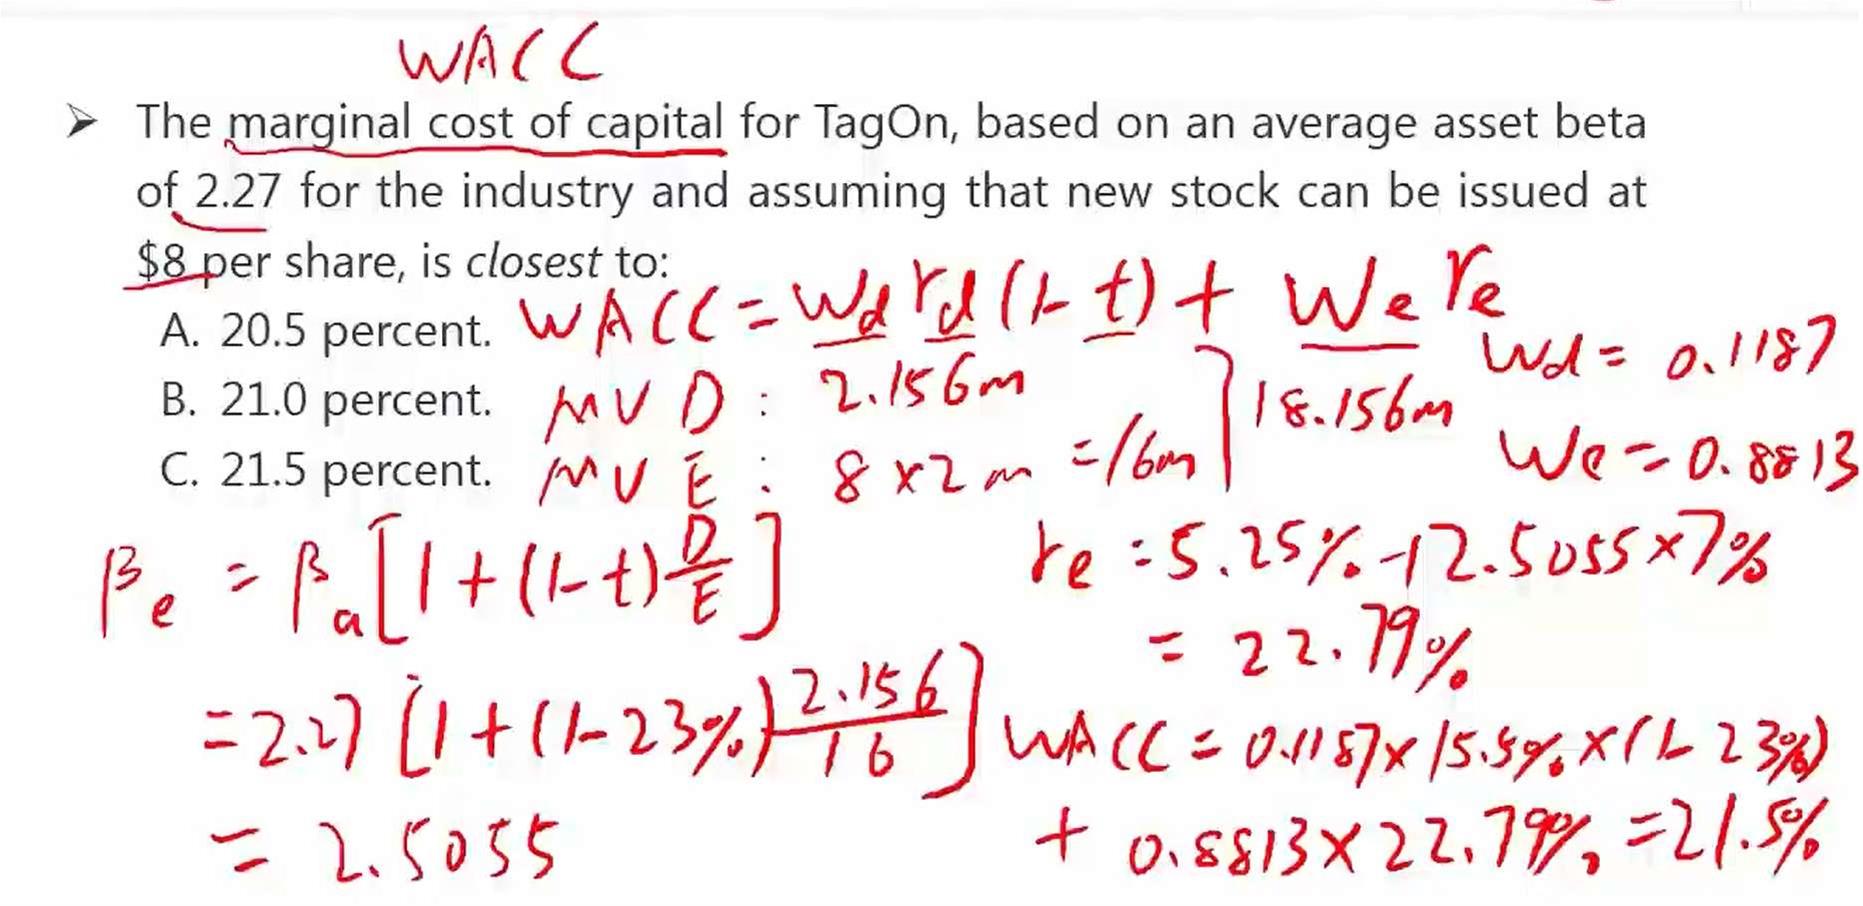 WACC
➤ The marginal cost of capital for TagOn, based on an average asset beta
of 2.27 for the industry and assuming that new stock can be issued at
$8 per share, is closest to:
A. 20.5 percent.
B. 21.0 percent.
C. 21.5 percent.
WACC = Wd rd (1-t) + We re
MVD : 2.156m
MVE : 8×2m =16m
18.156m
Wd = 0.1187
We = 0.8813
βe = βa [1+(1-t) D/E]
= 2.27 [1+(1-23%) 2.156/16]
= 2.5055
re = 5.25% + 2.5055×7%
= 22.79%
WACC = 0.1187×15.5%×(1-23%)
+ 0.8813×22.79% =21.5%